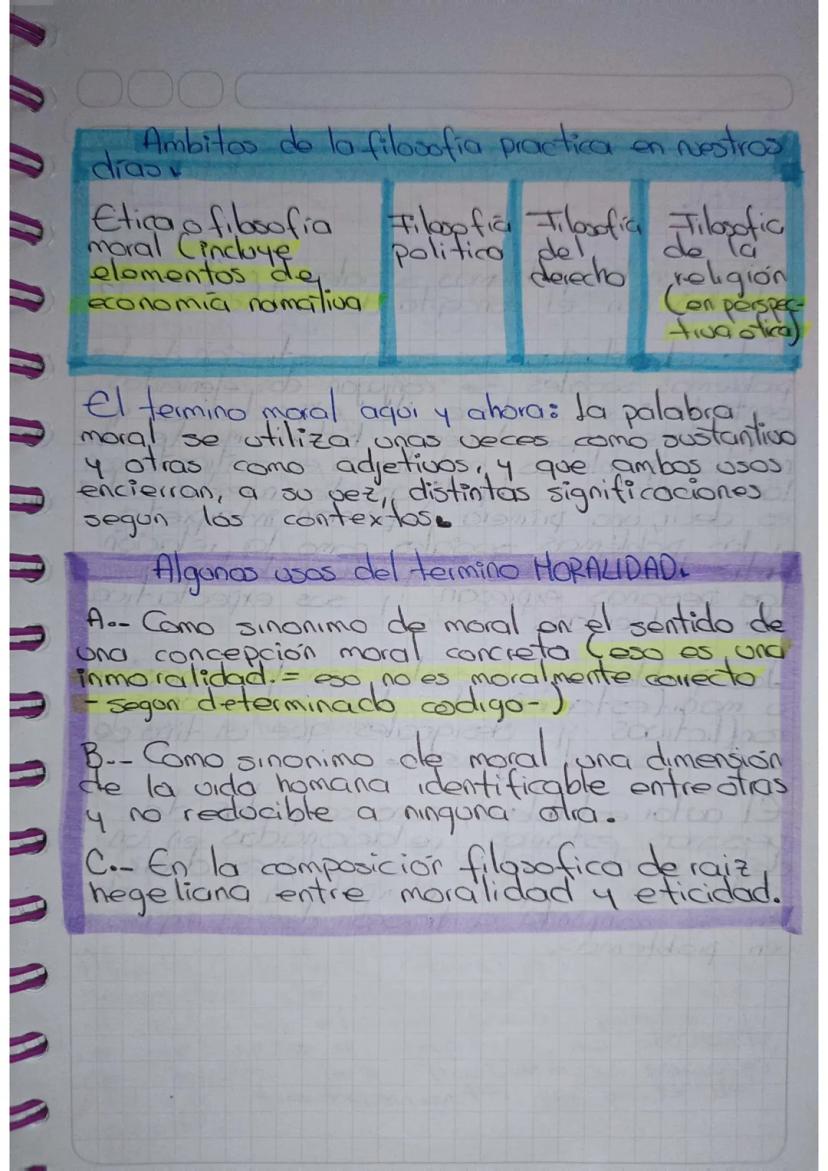 Ambitos de la filosofía practica en nuestros
días.
Etica o filosofía
moral (incluye
elementos de
economía normativa
Filosofía
politica
Filosofía
del
derecho
Filosofía
de la
religión
(en perspec-
tiva etica)
El termino moral aqui y ahora: la palabra
moral se utiliza unas veces como sustantivo
y otras como adjetivos, y que ambos usos
encierran, a su vez, distintas significaciones
segun los contextos.
Algunos usos del termino MORALIDAD.
A.- Como sinonimo de moral en el sentido de
una concepción moral concreta (eso es una
inmoralidad. = eso no es moralmente correcto
- segun determinado codigo-)
B.- Como sinonimo de moral, una dimensión
de la vida humana identificable entre otras
y no reducible a ninguna otra.
C.- En la composición filosofica de raiz
hegeliana entre moralidad y eticidad.